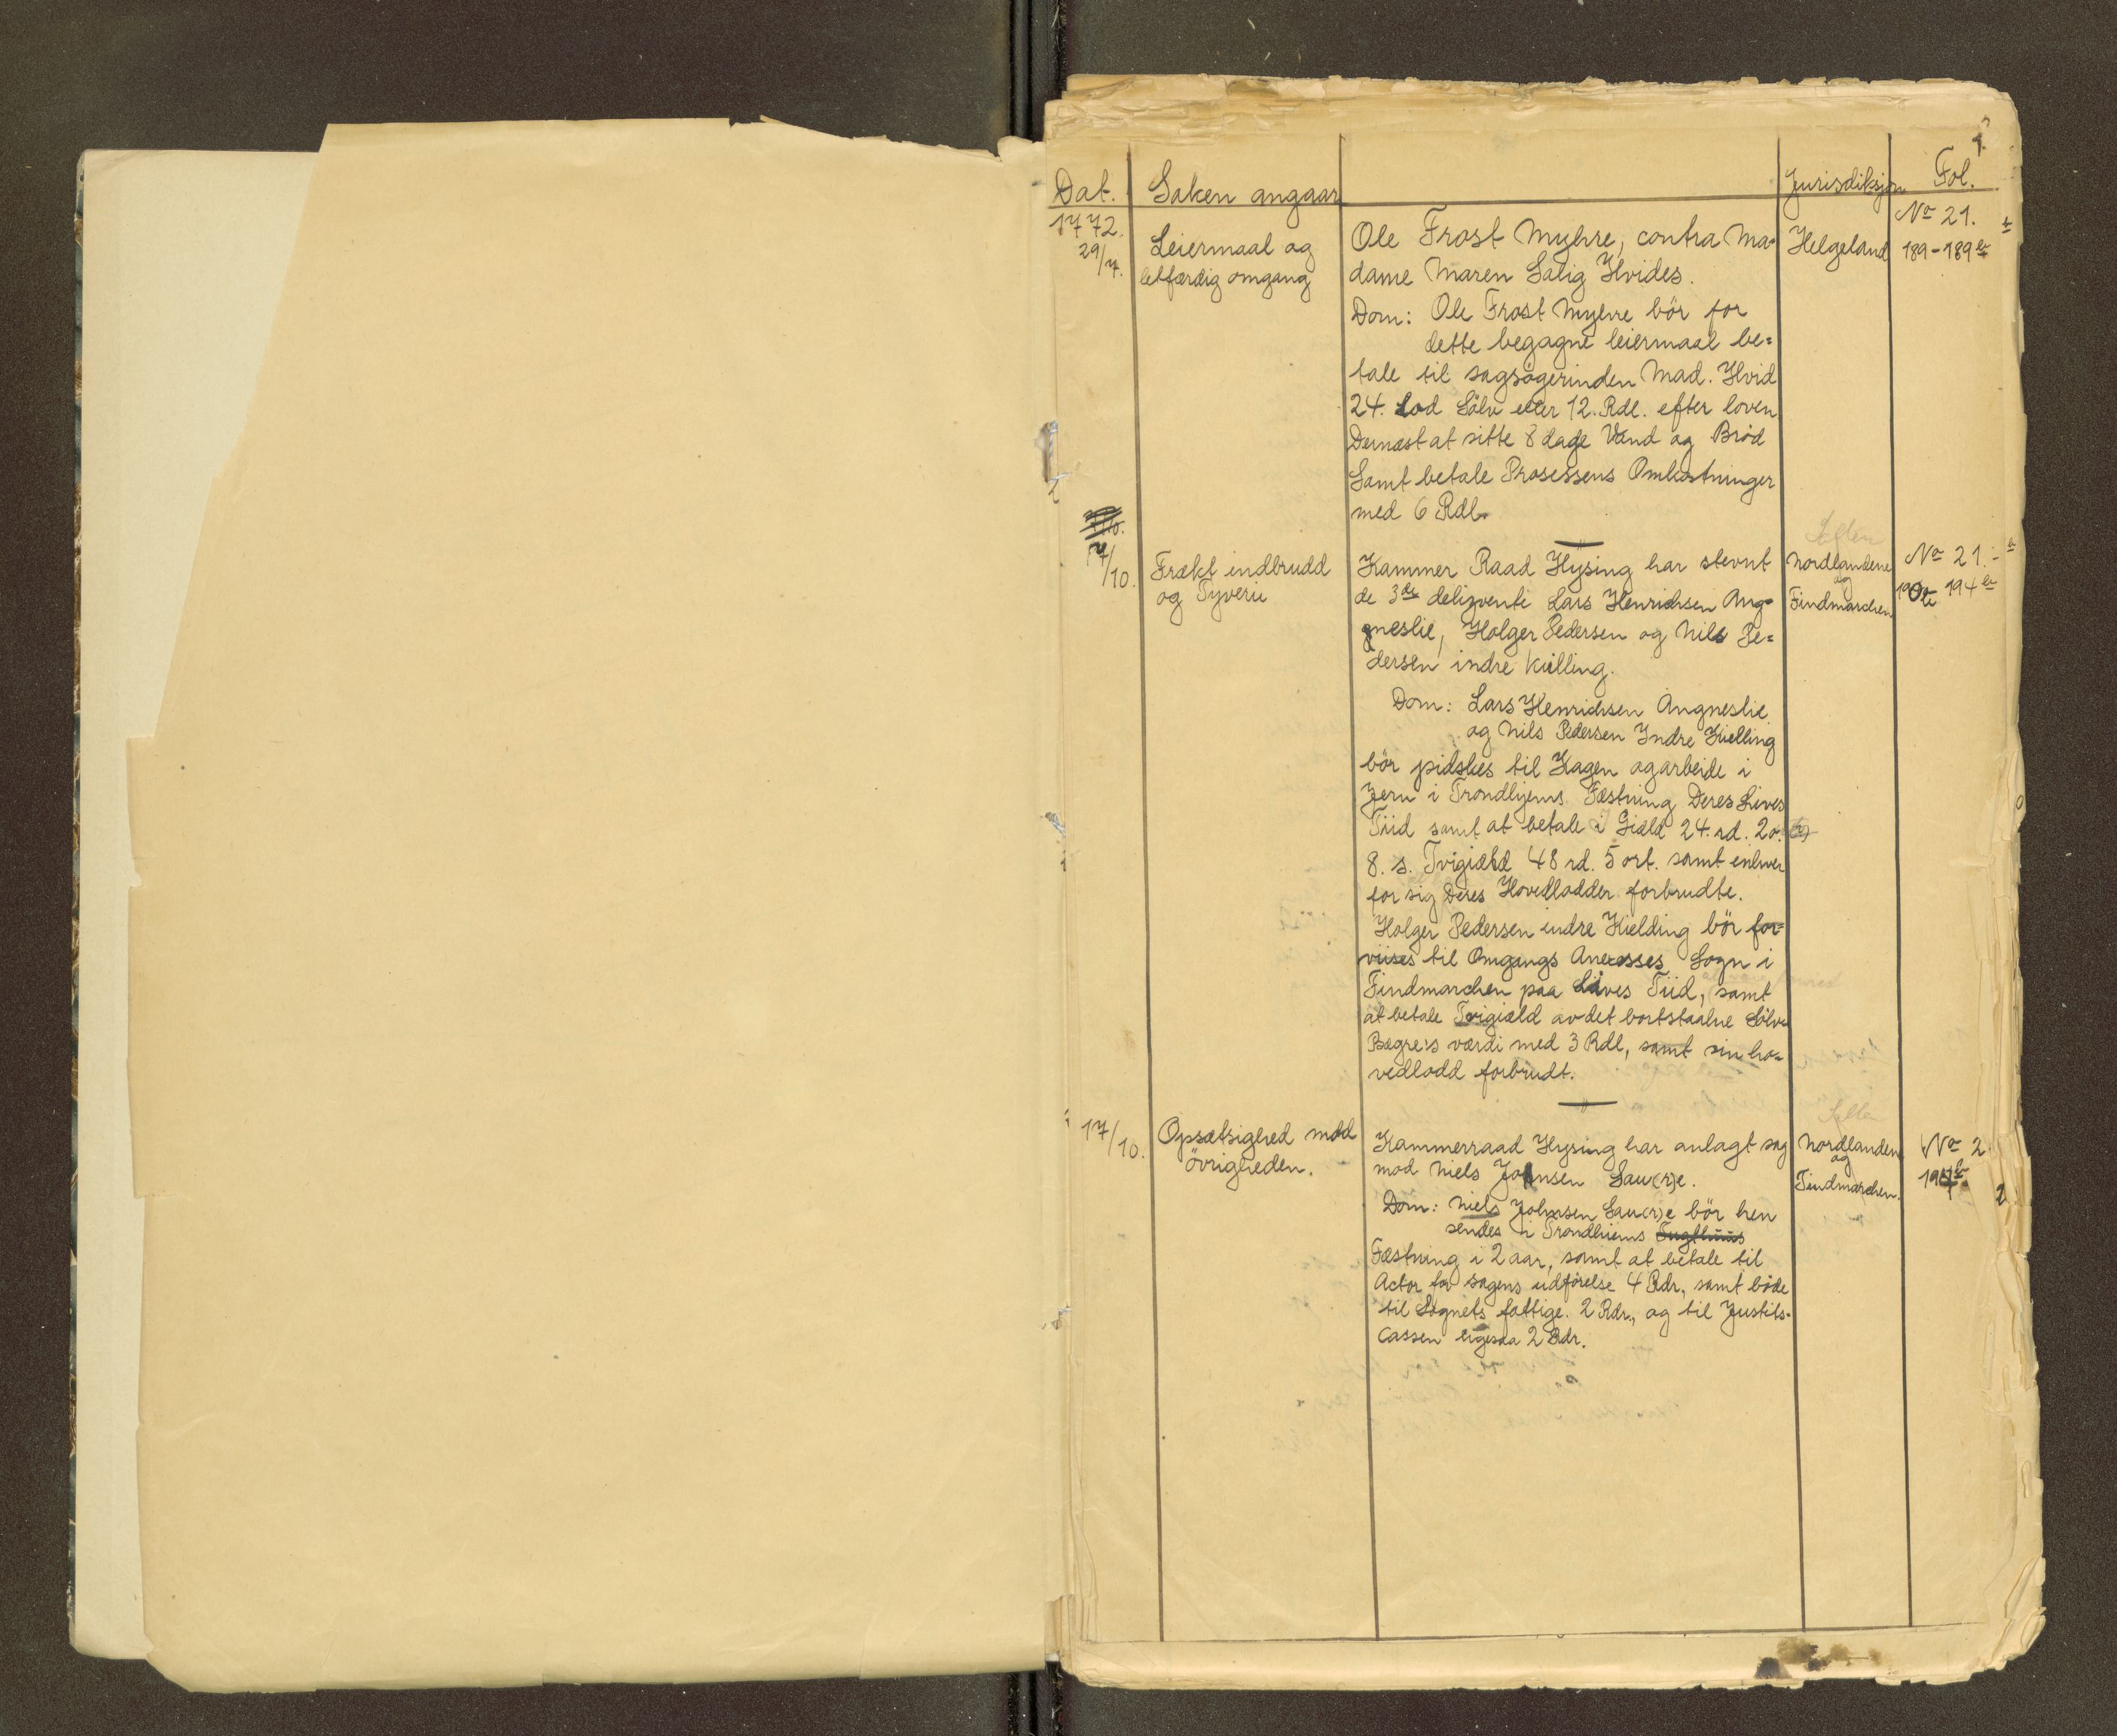 1.
Dat. Saken angaar Jurisdiksjon Fol.
1772.
29/7.
Leiermaal og
letfærdig omgang
Ole Frost Myhre, contra Ma-
dame Maren Salig Hvides.
Dom: Ole Frost Myhre bör for
dette begagne leiermaal be=
tale til sagsögerinden Mad. Hvid
24. Lod Sölv eller 12. Rdl. efter loven
Dernæst at sitte 8 dage Vand og Bröd
Samt betale Prosessens Omkostninger
med 6 Rdl.
Helgeland
No 21.
189-189b
17/10.
Frækt indbrudd
og Tyveri
Kammer Raad Hysing har stevnt
de 3de deliqventi Lars Henrichsen Ang-
gneslie, Holger Pedersen og Nils Pe=
dersen indre Kielling.
Dom: Lars Henrichsen Angneslie
og Nils Pedersen Indre Kielling
bör pidskes til Kagen og arbeide i
Jern i Trondhjems Fæstning Deres Lives
Tiid samt at betale i Giæld 24. rd. 2 o.
8. s. Tvigiæld 48 rd. 5 ort. samt enhver
for sig Deres Hovedlodder forbrudte.
Holger Pedersen indre Kielding bör for-
viises til Omgangs Anexsses Sogn i
Findmarchen paa Lives Tiid, samt
at betale Tvigiæld av det bortstaalne Sölv-
Bægre's værdi med 3 Rdl, samt sin ho-
vedlodd forbrudt.
Salten
Nordlandene
og
Findmarchen
No 21.
194b
17/10.
Opsætsighed mod
övrigheden.
Kammerraad Hysing har anlagt sag
mod Niels Johnsen Sau(r)e.
Dom: Niels Johnsen Sau(r)e bör hen
sendes i Trondhiems Tugthuus
Fæstning i 2 aar, samt at betale til
Actor for sagens udförelse 4 Rdr, samt böde
til Sognets fattige. 2 Rdr., og til Justits-
Cassen ligesaa 2 Rdr.
Salten
Nordlanden
og
Findmarchen.
No 2